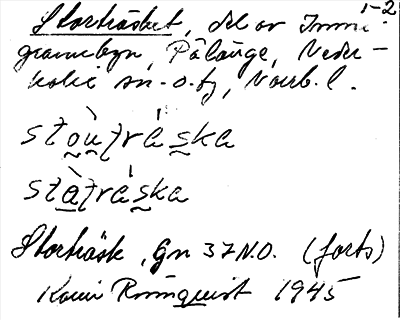 1-2
Storträsket, del av Inne-
gramebyn, Pålänge, Neder-
kalix sn. o. tg, Norrb. l.
stòu̯tráska
stàtráska
Storträsk, Gn 37 N.O. (forts)
Karin Rönnquist 1945